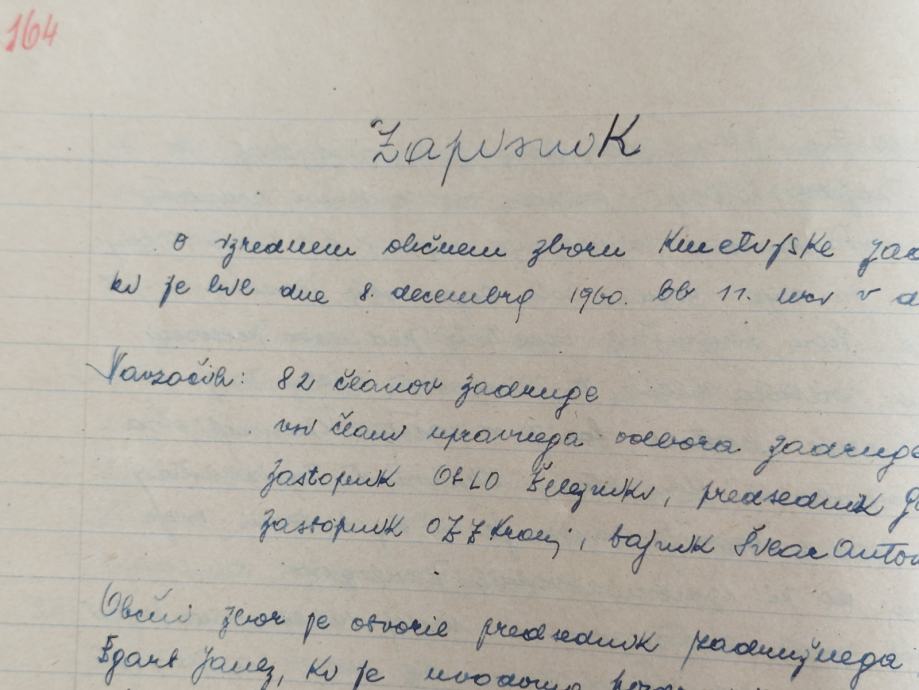 164
Zapisnik
o izrednem občnem zboru Kmetijske zad
ki je bil dne 8. decembra 1960. ob 11. uri v d
Navzočih: 82 članov zadruge
vsi člani upravnega odbora zadruge
zastopnik ObLO Železniki, predsednik
zastopnik OZZ Kranj, tajnik Anton
Občni zbor je otvoril predsednik zadružnega
Janez, ki je uvodoma